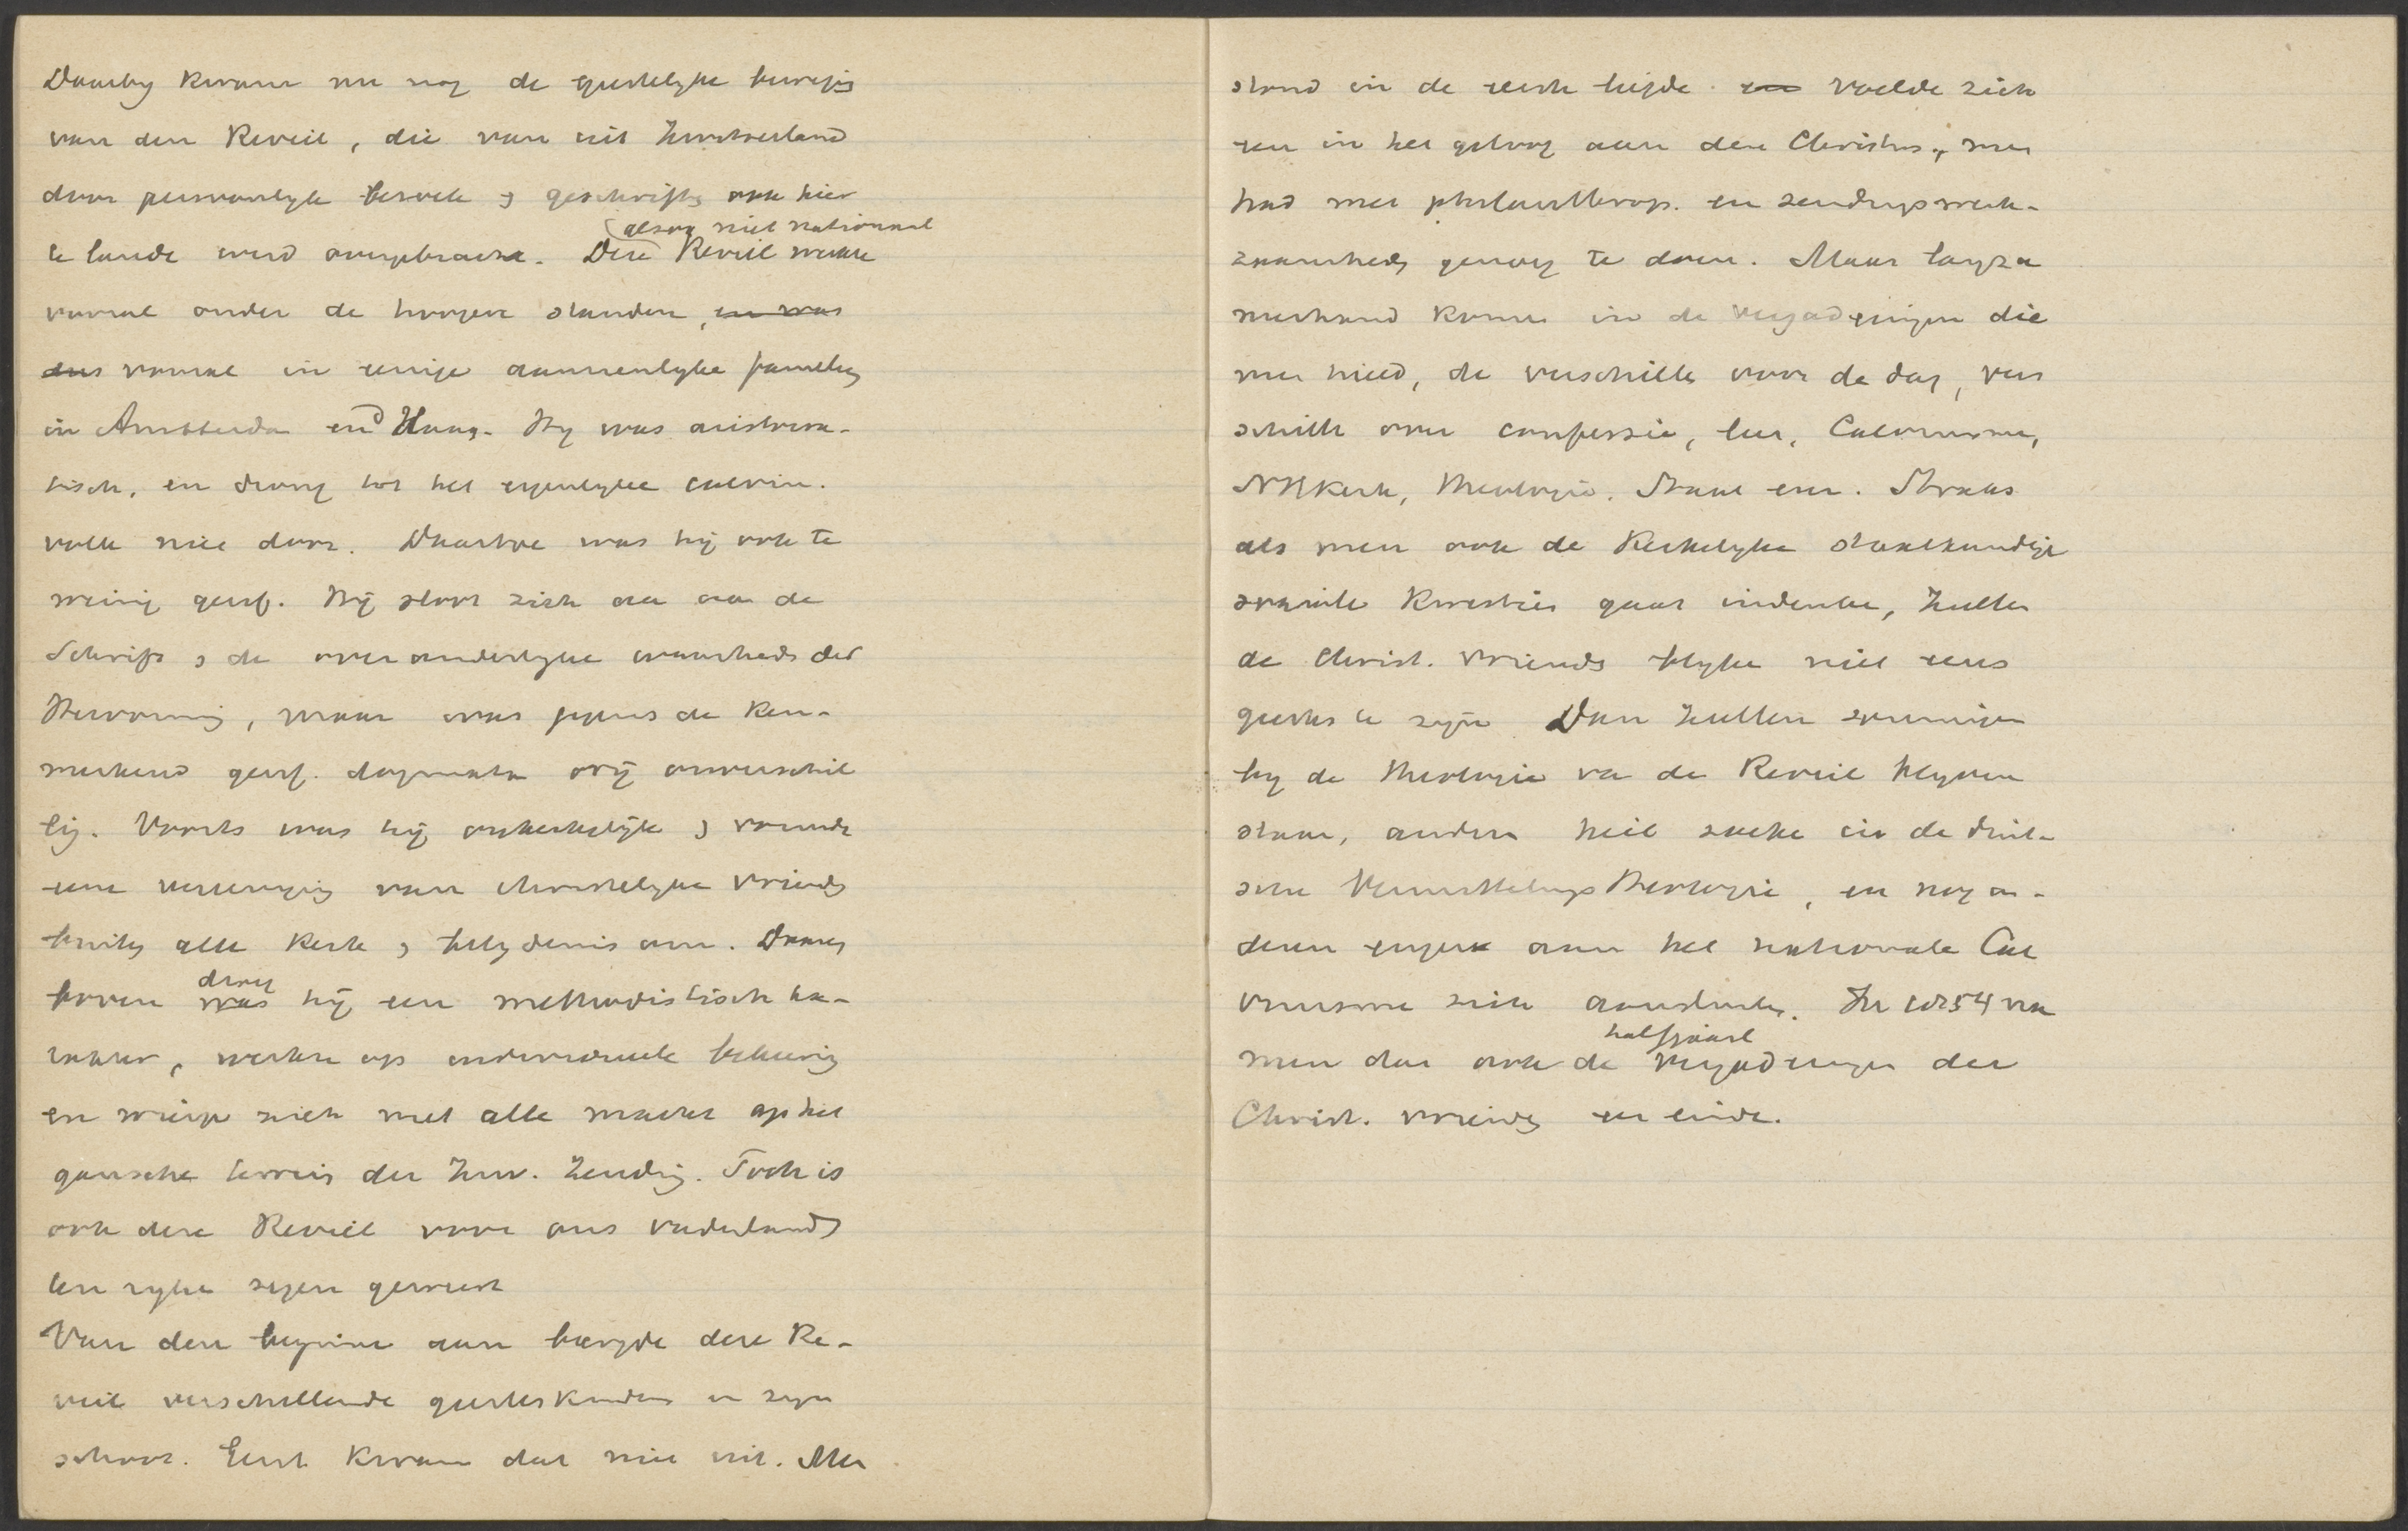 Daarby kwam nu nog de geestelyke beweging
van den Reveil, die van uit Zwitserland
door persoonlyk bezoek & geschriften ook hier
(alzoo niet nationaal
te lande werd overgebracht. Deze Reveil werkte
vooral onder de hoogere standen, en was
dus vooral in eenige aanzienlyke familien
in Amsterda en d Haag. Hy was aristocra-
tisch, en drong tot het eigenlyke calvin.
volk niet door. Daartoe was hij ook te
weinig geref. Hij sloot zich aan aan de
Schrift & de over anderlyke waarheden der
Hervorming, maar was jegens de ken-
merkend geref. dogmata vrij onverschil
lig. Voorts was hij onkerkelijk & vormde
eene vereeniging van christelyke vrienden
buiten alle kerk & belydenis om. Daaren
boven was droeg hij een methodistisch ka-
rakter, werkte op individueele bekeering
en wierp zich met alle macht op het
gansche terrein der Inw. Zending. Toch is
ook deze Reveil voor ons vaderland
ten ryke zegen geweest
Van den beginne aan borgde deze Re-
veil verschillende geesteskinderen in zyn
schoot. Eerst kwam dat niet uit. Men
stond in de eerste liefde en voelde zich
een in het geloof aan den Christus, men
had met philanthrop. en zendingswerk-
zaamheden genoeg te doen. Maar langza
merhand komen in de vergaderingen die
men hield, de verschillen voor de dag, ver
schille over confessie, leer, Calvinisme,
NHKerk, theologie, Staat enz. Straks
als men ook de kerkelyke staatkundige
sociale kwesties gaat indenken, zullen
de Christ. vrienden blyken niet eens
geestes te zijn. Dan zullen sommigen
by de theologie van de Reveil blyven
staan, anderen heil zoeken in de duit-
sche Vermittelungstheologie, en nog an-
deren enger aan het nationale Cal
vinisme zich aansluiten. In 1854 na
halfjaarl
men dan ook de vergaderingen der
Christ. vrienden een einde.